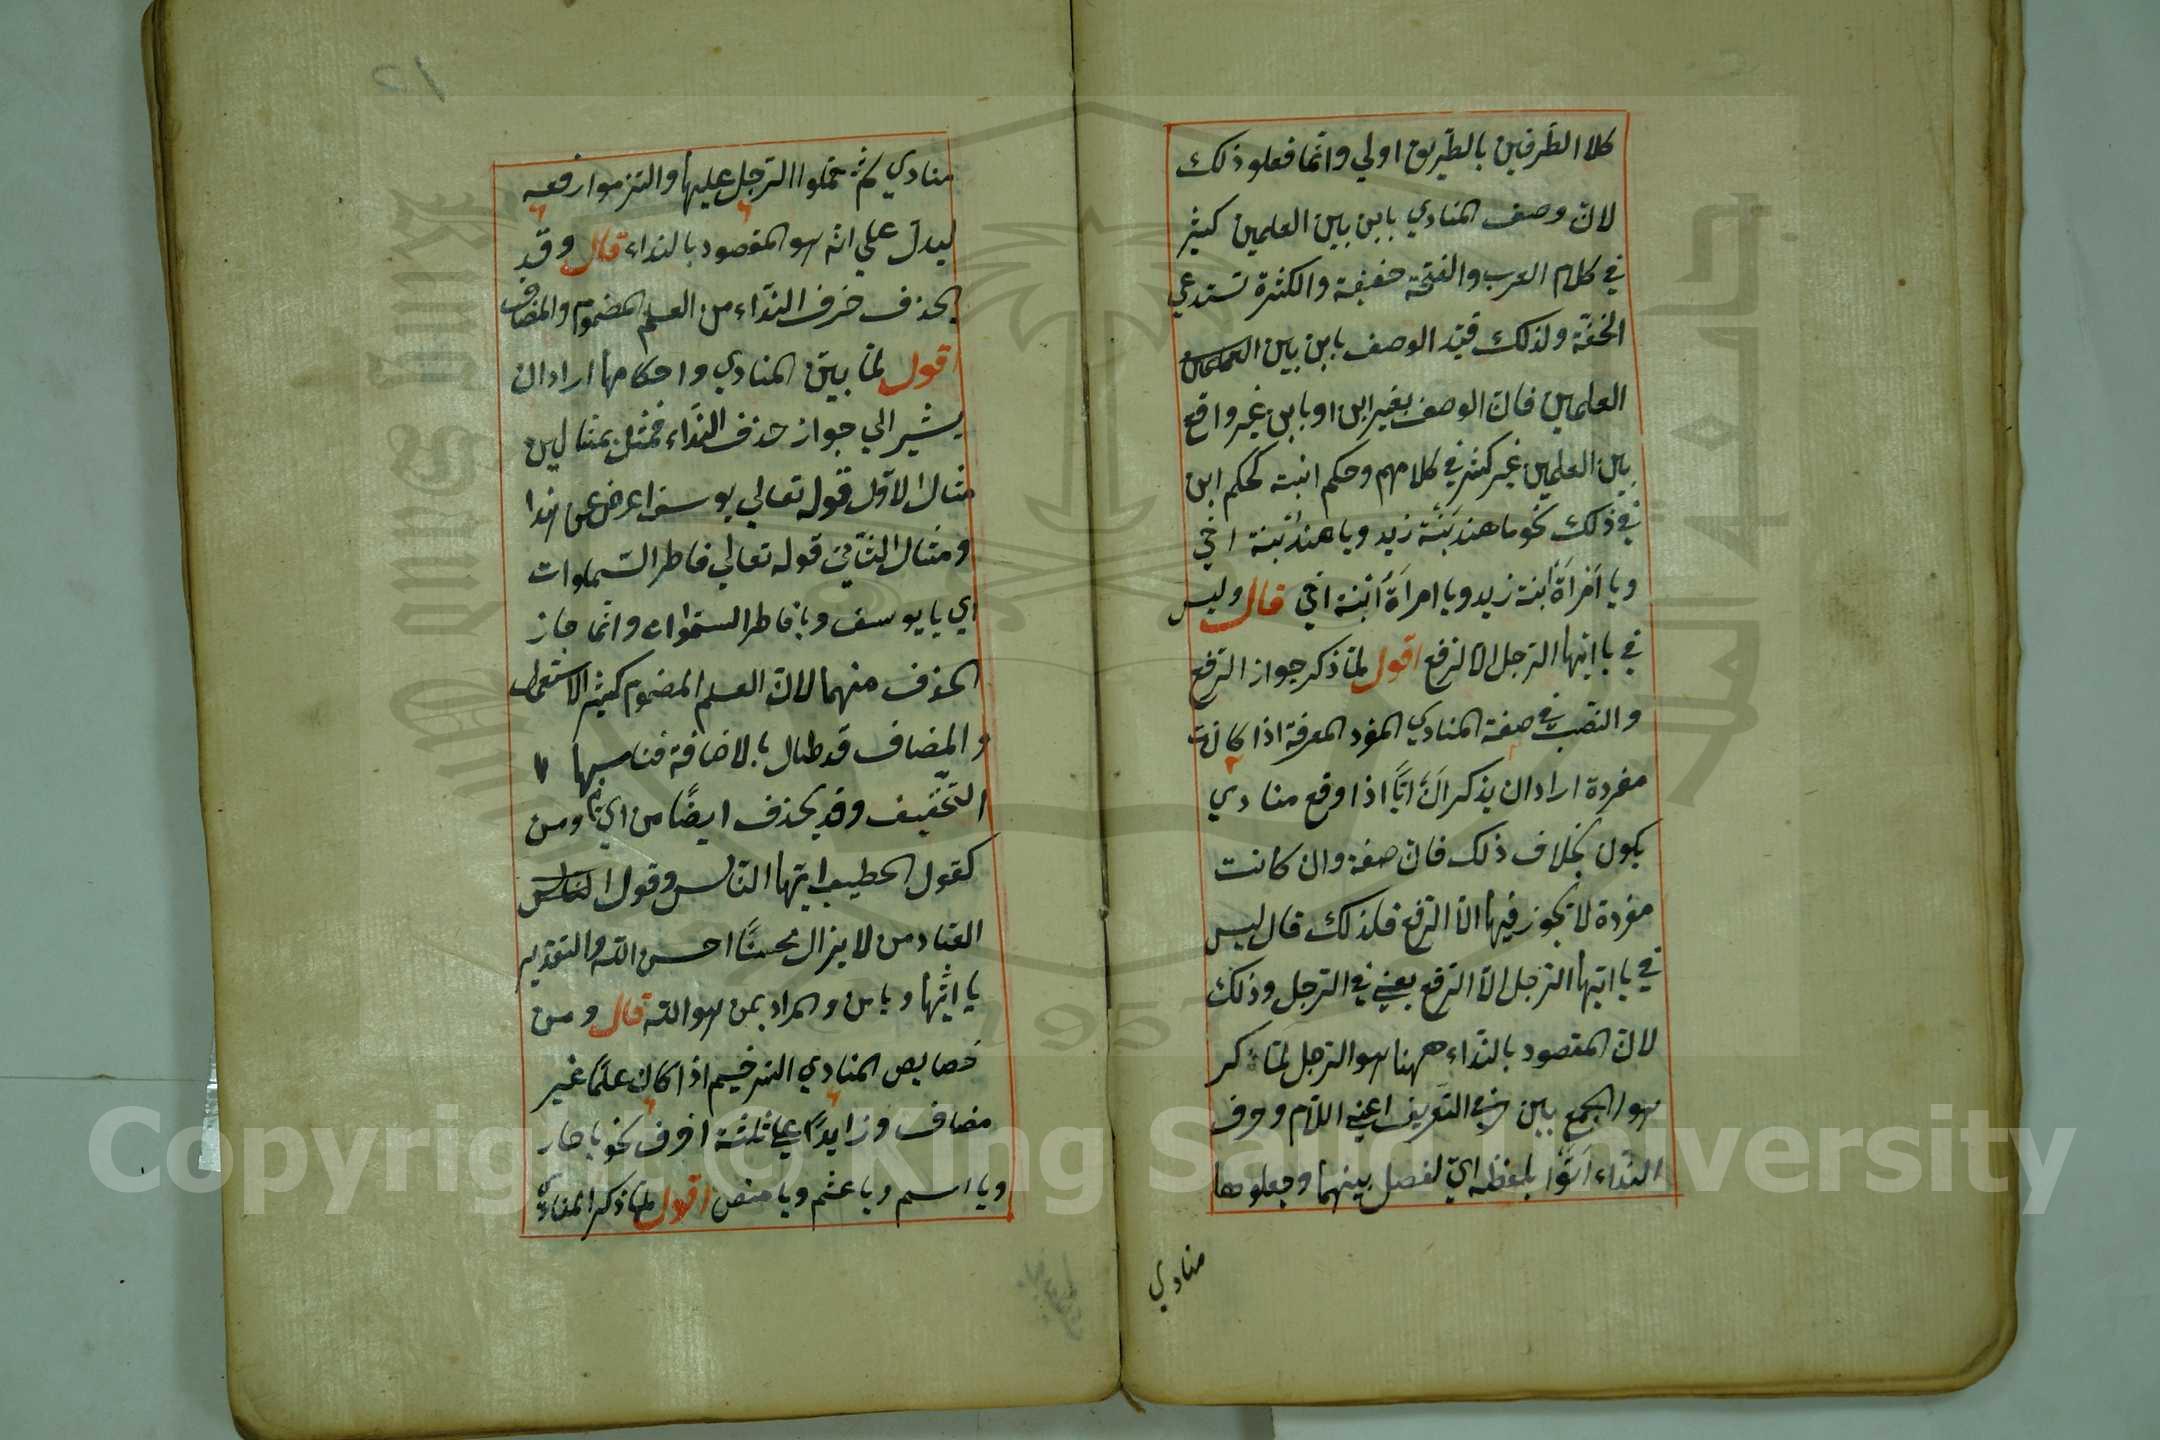 كلا الطرفين بالطريق اولي وانما فعلو ذلك
لان وصف المنادي بابن بين العلمين كثير
في كلام العرب والفتحة خفيفة والكثرة تستدعي
الخفة ولذلك قيد الوصف بابن بين العلمين
العلمين فان الوصف بغير ابن او بابن غير واقع
بين العلمين غير كثير في كلامهم وحكم ابنة كحكم ابن
في ذلك نحو يا هند ابنة زيد ويا هند ابنة اخي
ويا امراة ابنة زيد ويا امراة ابنة اخي قال وليس
في يا ايها الرجل الا الرفع اقول لما ذكر جواز الرفع
والنصب في صفة المنادي المفرد المعرفة اذا كانت
مفردة اراد ان يذكر ان ايا اذا وقع منادي
يكون بخلاف ذلك فان صفة وان كانت
مفردة لا تجوز فيها الا الرفع فلذلك قال ليس
في يا ايها الرجل الا الرفع يعني في الرجل وذلك
لان المقصود بالنداء ههنا هو الرجل لما كر
هوا الجمع بين حرفي التعريف اعني اللام وحرف
النداء اتوا بلفظه اي لفصل بينهما وجعلوها
منادي
١٢
منادي ثم حملوا الرجل عليها والتزموا رفعه
ليدل علي انه هو المقصود بالنداء قال وقد
يحذف حرف النداء من العلم المضموم والمضاف
اقول لما بين المنادي واحكامها اراد ان
يشير الي جواز حذف النداء فمثل بمثالين
مثال الاول قوله تعالي يوسف اعرض عن هذا
ومثال الثاني قوله تعالي فاطر السماوات
اي يا يوسف ويا فاطر السموات وانما جاز
الحذف منهما لان العلم المضموم كثير الاستعمال
والمضاف قد طال بالاضافة فناسبها
التخفيف وقد يحذف ايضا من اي ومن
كقول الخطيب ايها الناس وقول الناس
العباد من لا يزال محسنا احسن الله والتقدير
يا ايها ويا من والمراد بمن هو الله قال ومن
خصايص المنادي الترخيم اذا كان علما غير
مضاف وزايدا علي ثلثة احرف نحو يا حار
ويا اسم ويا عثم ويا منص اقول لما ذكر المنادي